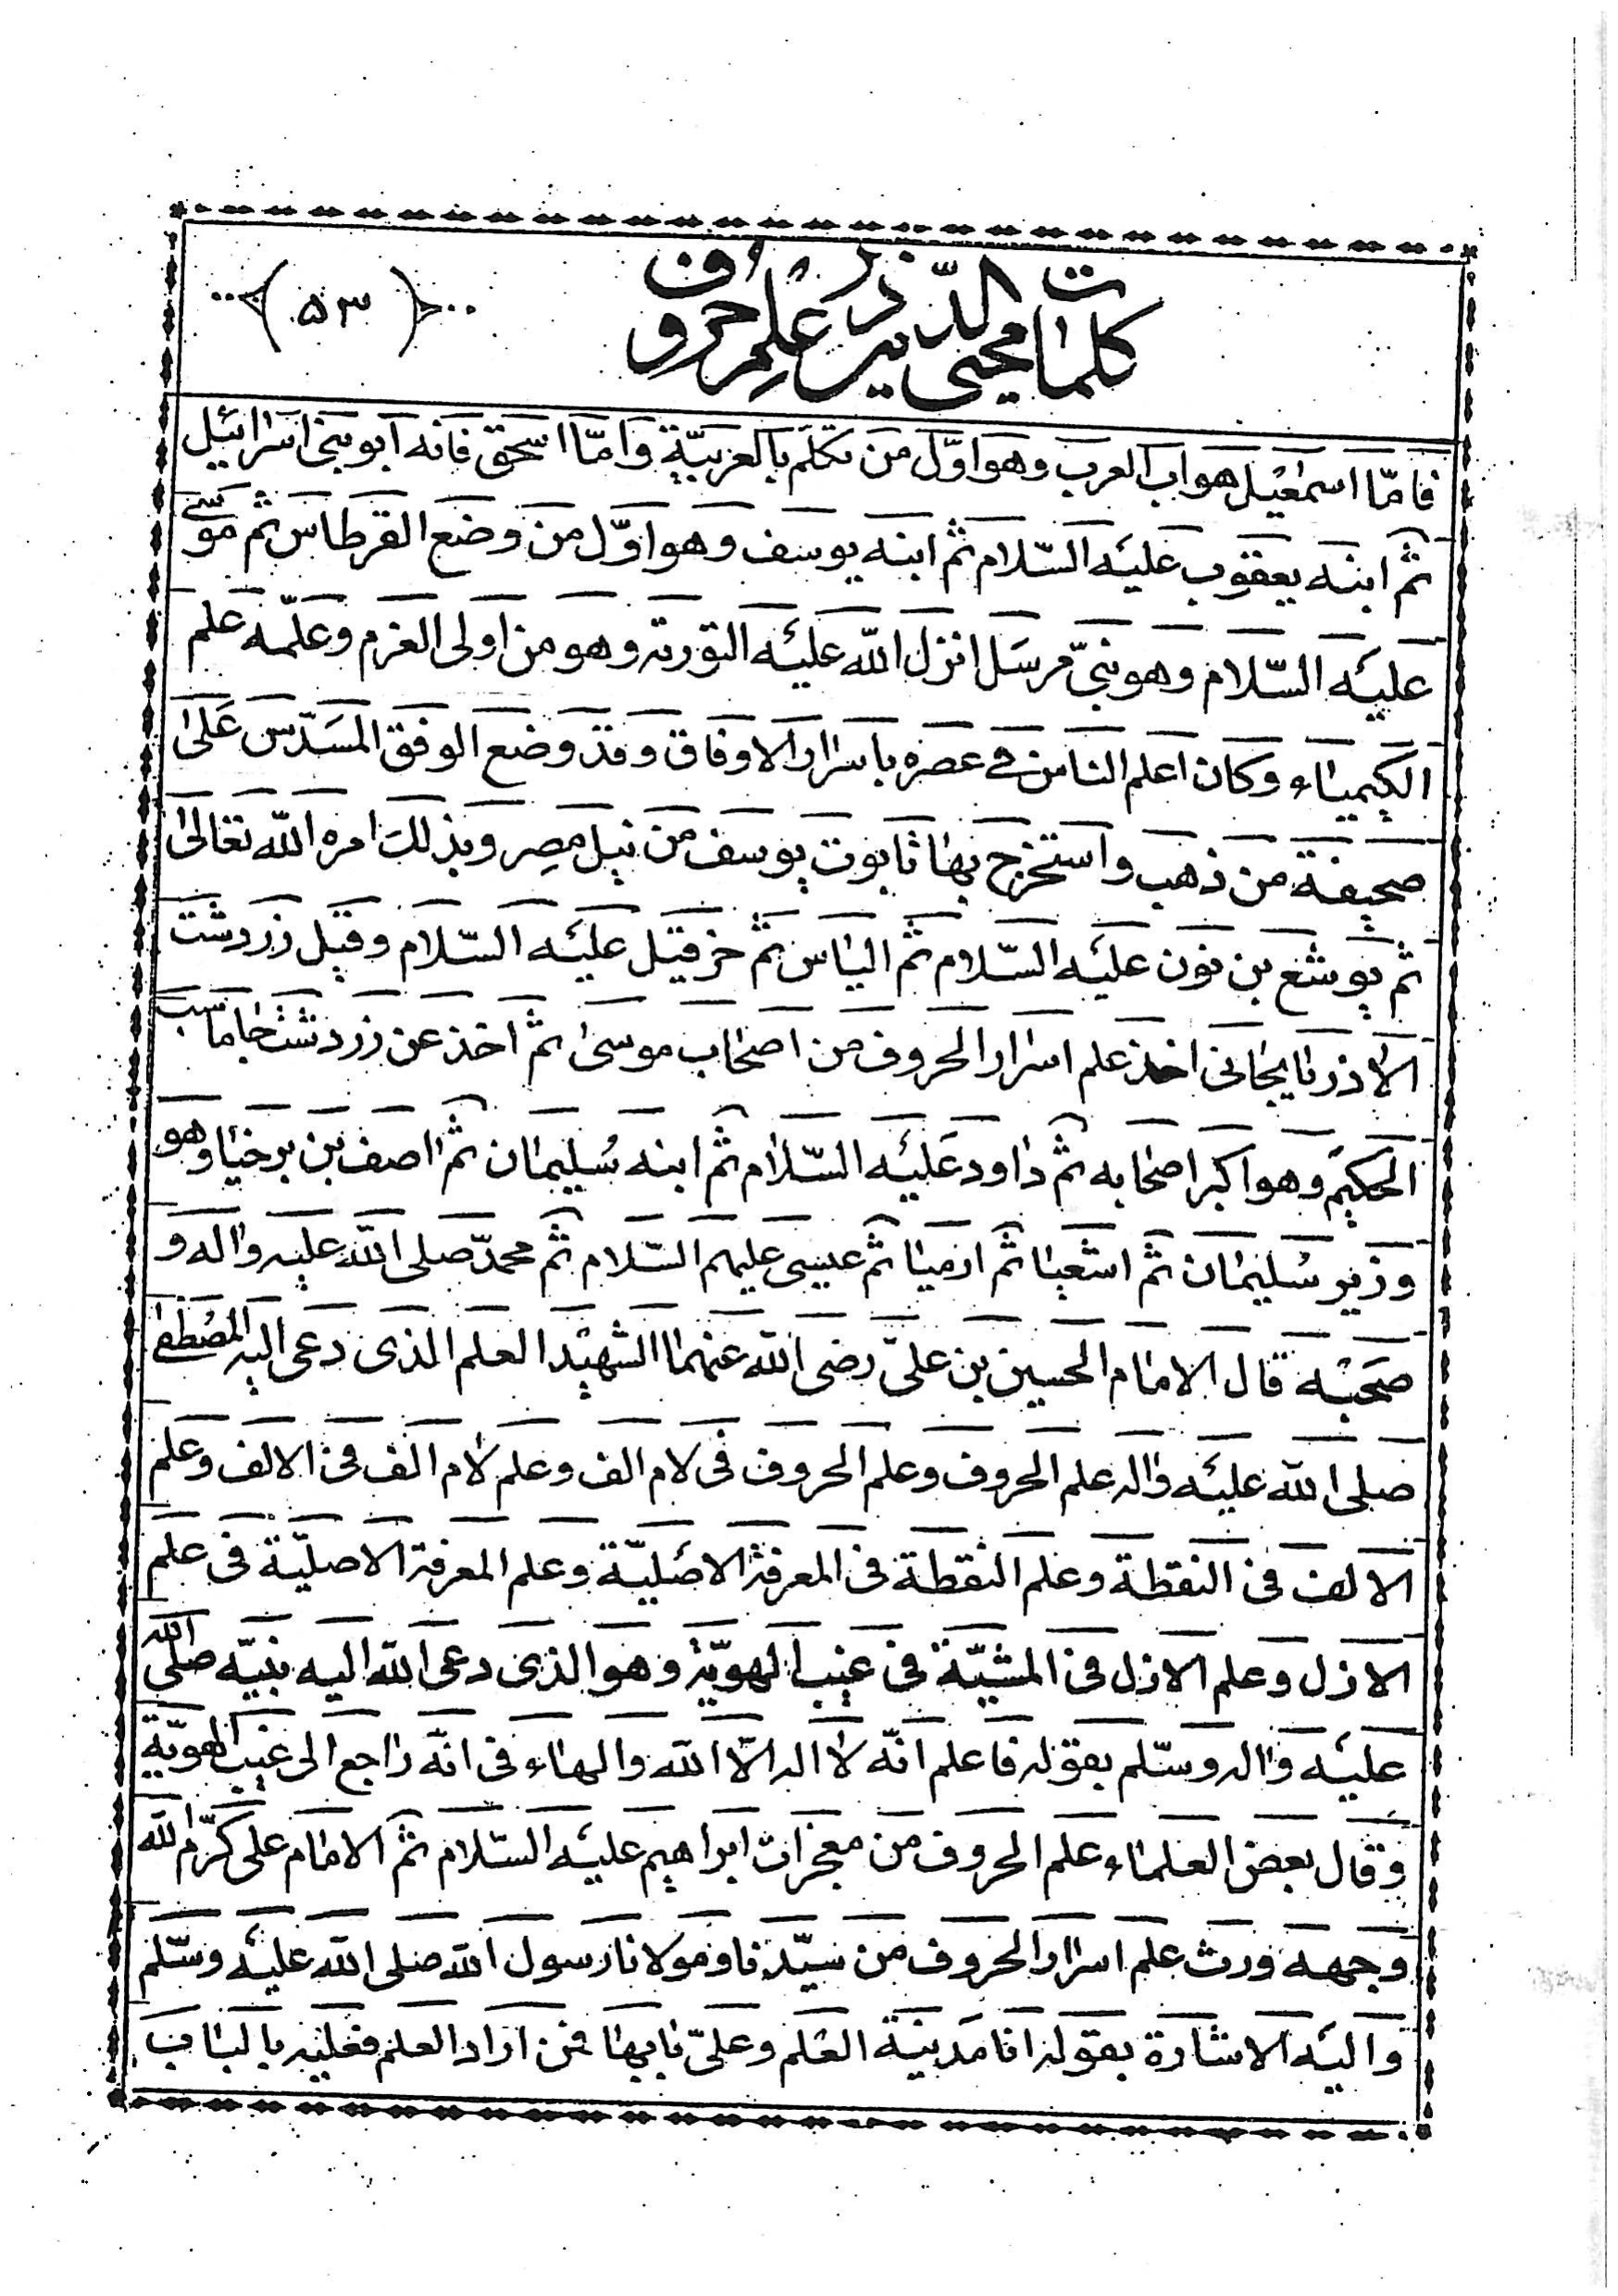 كلمات محيى الدّين در علم حروف
(۵۳)
فامّا اسمعيل هو اب العرب وهو اوّل من تكلّم بالعربيّة وامّا اسحق فانه ابو بنى اسرائيل
ثم ابنه يعقوب عليه السّلام ثم ابنه يوسف وهو اوّل من وضع القرطاس ثم موسى
عليه السّلام وهو نبىّ مرسل انزل الله عليه التورية وهو من اولى العزم وعلّمه علم
الكيمياء وكان اعلم الناس فى عصره باسرار الاوفاق وقد وضع الوفق المسدّس على
صحيفة من ذهب واستخرج بها تابوت يوسف من نيل مصر وبذلك امره الله تعالى
ثم يوشع بن نون عليه السّلام ثم الياس ثم حزقيل عليه السّلام وقيل زردشت
الاذربايجانى اخذ علم اسرار الحروف من اصحاب موسى ثم اخذ عن زردشت جاماسب
الحكيم وهو اكبر اصحابه ثم داود عليه السّلام ثم ابنه سليمان ثم اصف بن برخيا وهو
وزير سليمان ثم اشعيا ثم ارميا ثم عيسى عليهم السّلام ثم محمدّ صلى الله عليه واله و
صحبه قال الامام الحسين بن علىّ رضى الله عنهما الشهيد العلم الذى دعى اليه المصطفى
صلى الله عليه واله علم الحروف وعلم الحروف فى لام الف وعلم لام الف فى الالف وعلم
الالف فى النقطة وعلم النقطة فى المعرفة الاصليّة وعلم المعرفة الاصليّة فى علم
الازل وعلم الازل فى المشيّة فى غيب الهويّة وهو الذى دعى الله اليه نبيّه صلى الله
عليه واله وسلّم بقوله فاعلم انّه لا اله الّا الله والهاء فى انّه راجع الى غيب الهويّة
وقال بعض العلماء علم الحروف من معجزات ابراهيم عليه السّلام ثم الامام على كرّم الله
وجهه ورث علم اسرار الحروف من سيّدنا ومولانا رسول الله صلى الله عليه وسلّم
واليه الاشارة بقوله انا مدينة العلم وعلىّ بابها فمن اراد العلم فعليه بالباب